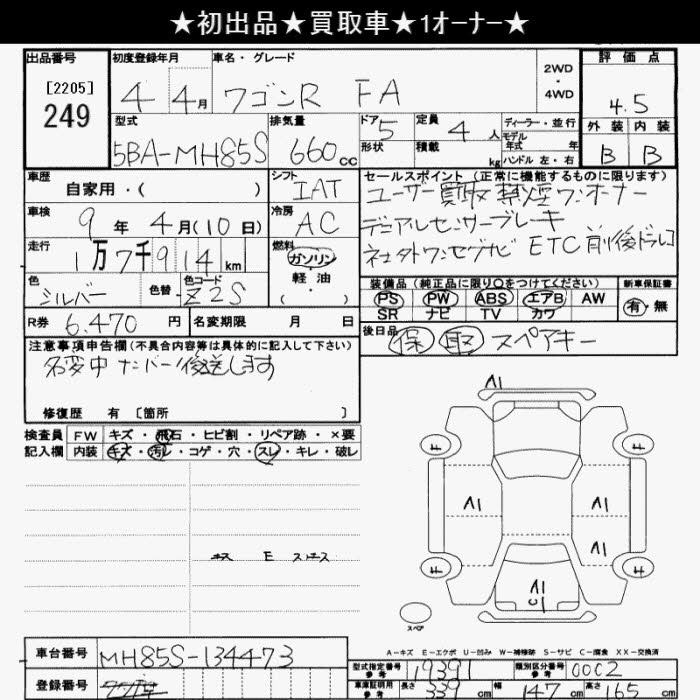 ★初出品★買取車★1オーナー★
出品番号
[2205]
249
初度登録年月
4 4月
車名・グレード
ワゴンR FA
2WD
・
4WD
評価点
4.5
外装 内装
B B
型式
5BA-MH85S
排気量
660cc
ドア 5
形状
定員 4人
積載 kg
ディーラー・並行
モデル
年式 年式
ハンドル 左・右
車歴
自家用・( )
シフト
IAT
車検
9年 4月(10日)
冷房
AC
走行
1万7千914km
燃料
ガソリン
軽油
( ・ )
色
シルバー
色替
色コード
Z2S
R券 6.470円
名変期限 月 日
セールスポイント(正常に機能するものに限ります)
ユーザー買取 禁煙 ワンオーナー
デュアルセンサーブレーキ
ネオタトワンセグナビ ETC 前後ドラレコ
装備品(純正品に限り○をつけてください)
PS PW ABS エアB AW
SR ナビ TV カワ
新車保証書
有・無
後日品
保 取 スペアキー
注意事項申告欄(不具合内容等は具体的に記入して下さい)
名変中 ナンバー後送します
修復歴 有 [箇所 ]
検査員
記入欄
FW キズ・飛石・ヒビ割・リペア跡・×要
内装 キズ・汚レ・コゲ・穴・スレ・キレ・破レ
A1
A1
A1
A1
A1
スペア
A-キズ E-エクボ U-凹み W-補修跡 S-サビ C-腐食 XX-交換済
車台番号 MH85S-134473
登録番号
型式指定番号
参考
19391
類別区分番号
参考
0002
車庫証明用
参考
長さ 339cm 幅 147cm 高さ 165cm